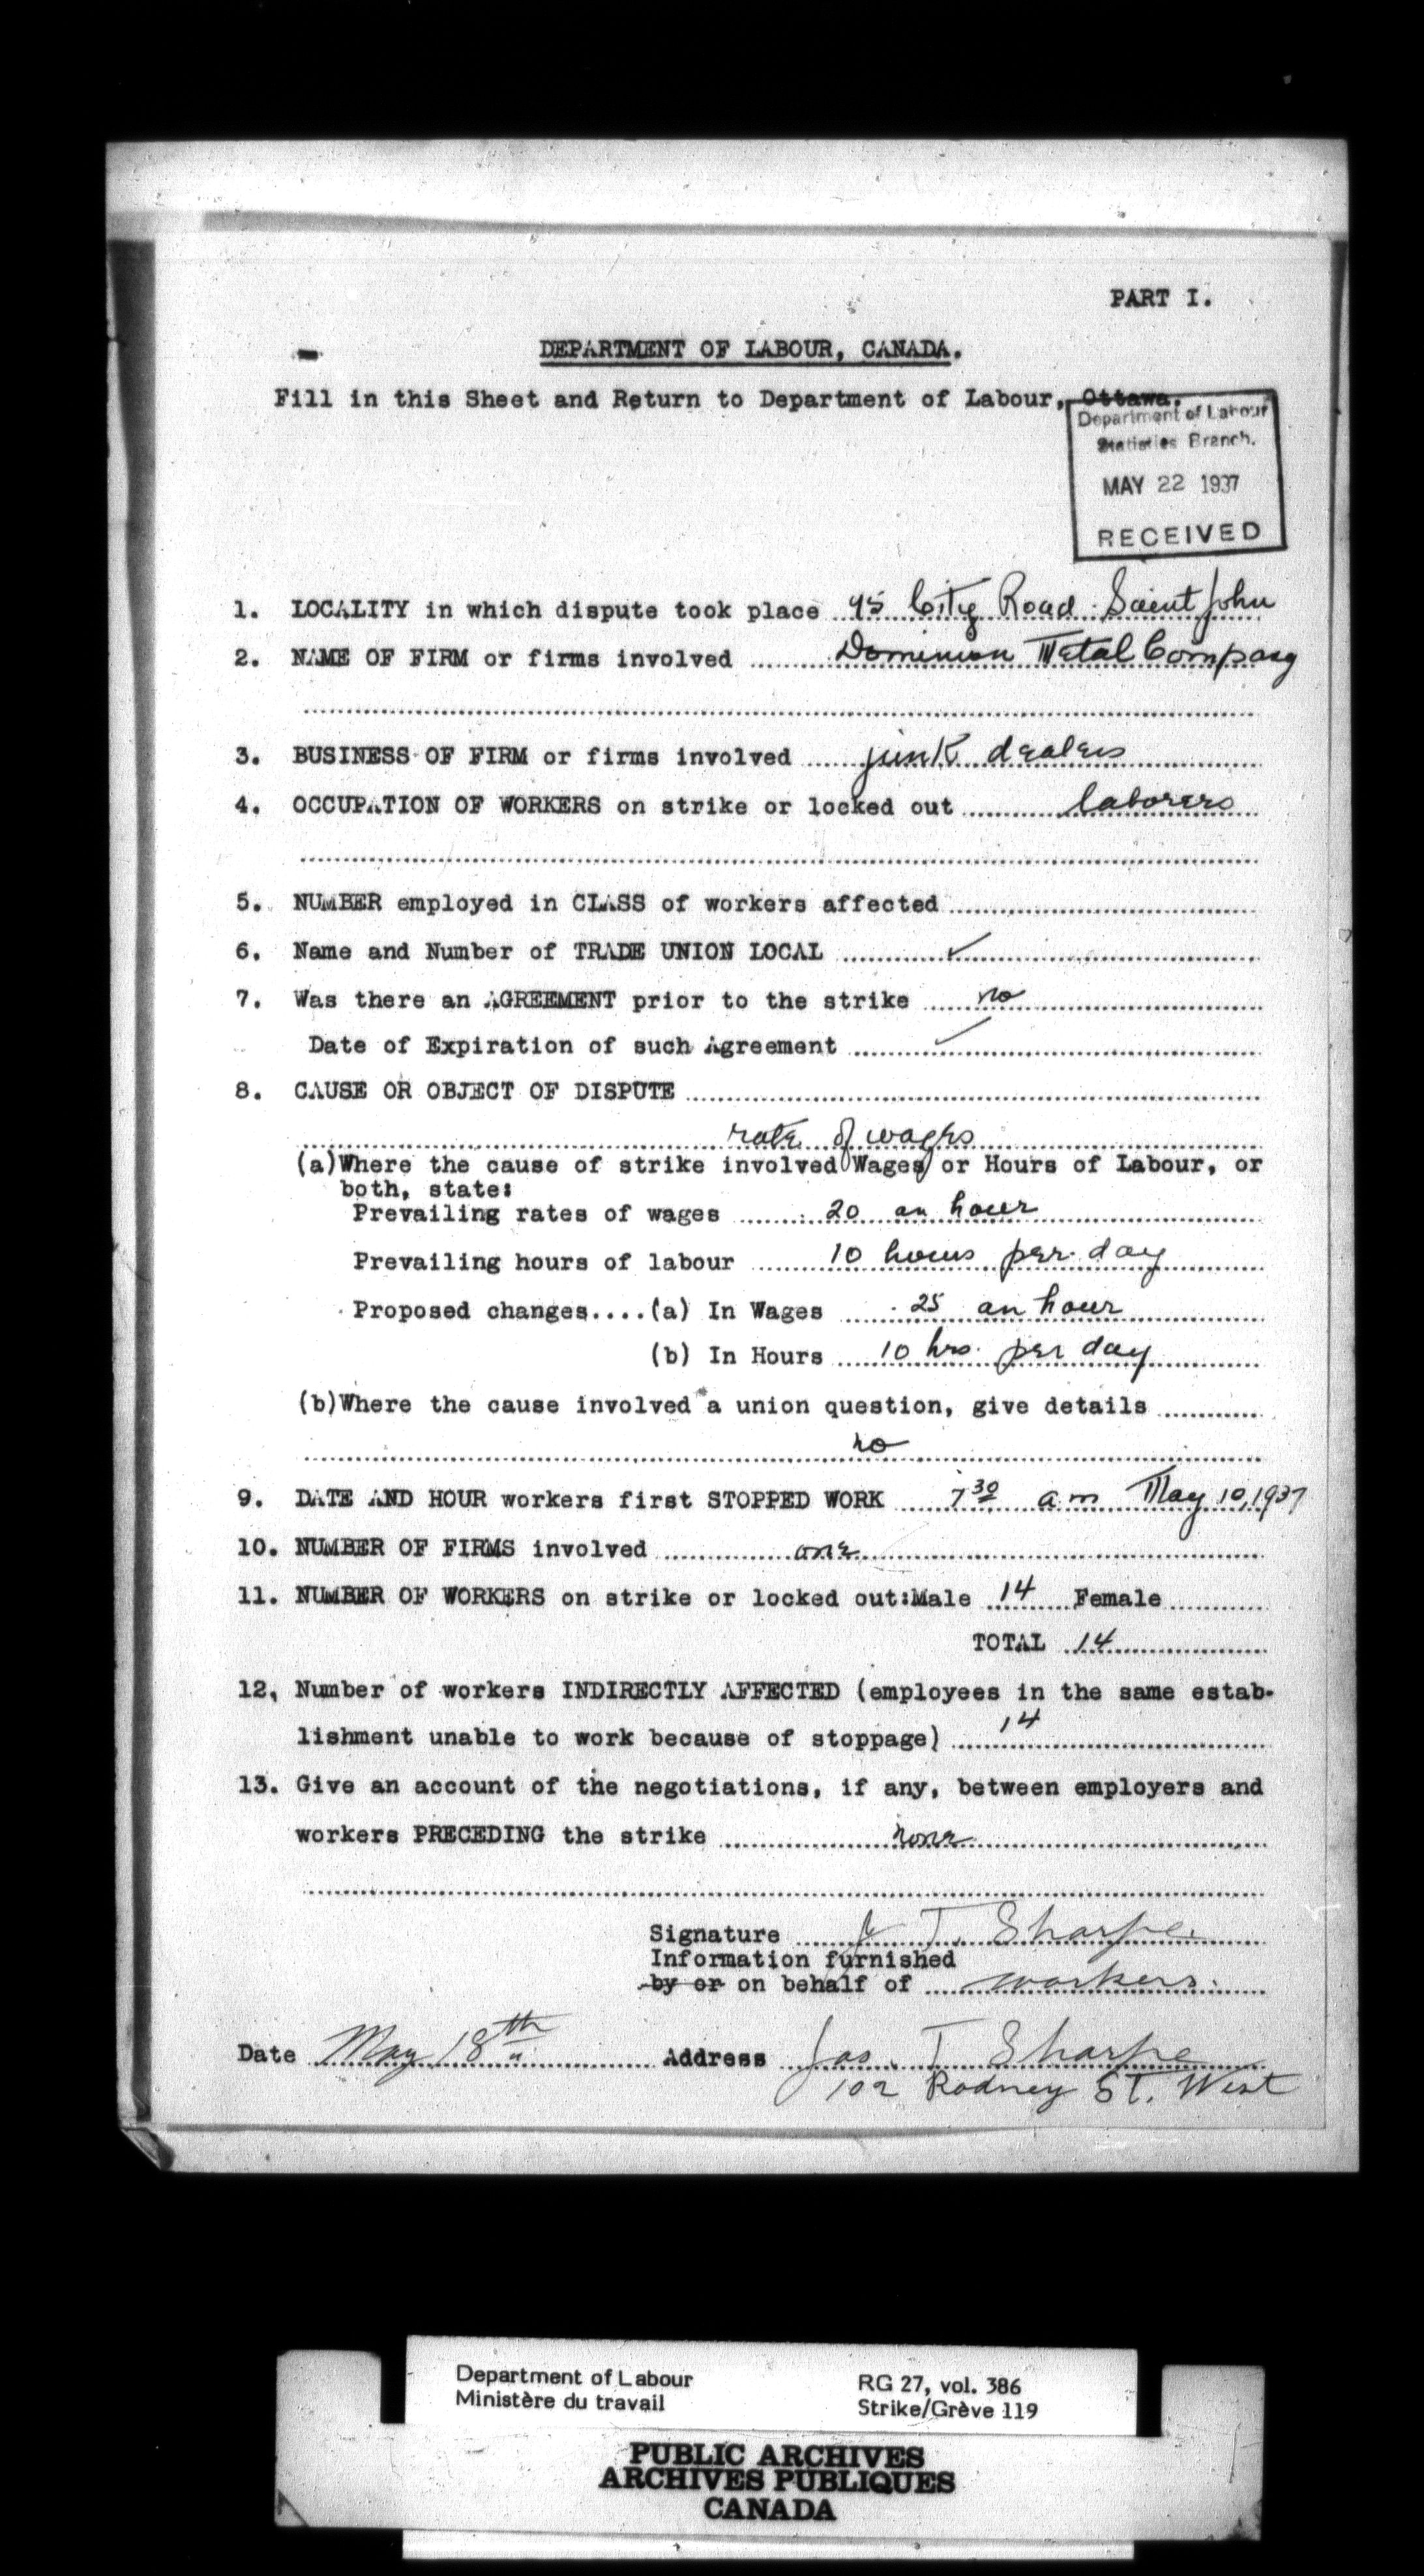 PART I.
DEPARTMENT OF LABOUR, CANADA.
Fill in this Sheet and Return to Department of Labour, Ottawa.
Department of Labour
Statistics Branch.
MAY 22 1937
RECEIVED
1. LOCALITY in which dispute took place 95 City Road Saint John
2. NAME OF FIRM or firms involved Dominion Metal Company
3. BUSINESS OF FIRM or firms involved junk dealers
4. OCCUPATION OF WORKERS on strike or locked out laborers
5. NUMBER employed in CLASS of workers affected
6. Name and Number of TRADE UNION LOCAL ✓
7. Was there an AGREEMENT prior to the strike no
Date of Expiration of such Agreement ✓
8. CAUSE OR OBJECT OF DISPUTE
rate of wages
(a)Where the cause of strike involved Wages or Hours of Labour, or
both, state:
Prevailing rates of wages .20 an hour
Prevailing hours of labour 10 hours per day
Proposed changes....(a) In Wages .25 an hour
(b) In Hours 10 hrs. per day
(b)Where the cause involved a union question, give details
no
9. DATE AND HOUR workers first STOPPED WORK 7 30 a m May 10, 1937
10. NUMBER OF FIRMS involved one
11. NUMBER OF WORKERS on strike or locked out:Male 14 Female
TOTAL 14
12, Number of workers INDIRECTLY AFFECTED (employees in the same estab-
lishment unable to work because of stoppage) 14
13. Give an account of the negotiations, if any, between employers and
workers PRECEDING the strike none
Signature J T. Sharpe.
Information furnished
by or on behalf of workers.
Date May 18th Address Jas. T Sharpe
102 Rodney ST. West
Department of Labour RG 27, vol. 386
Ministère du travail Strike/Grève 119
PUBLIC ARCHIVES
ARCHIVES PUBLIQUES
CANADA